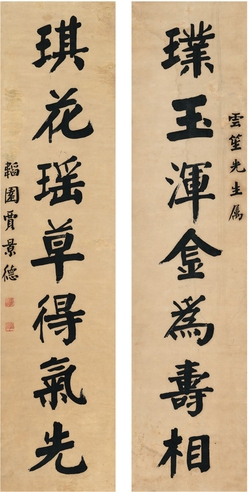 璞玉渾金為壽相
雲笙先生属
琪花瑶草得氣先
韜園賈景德